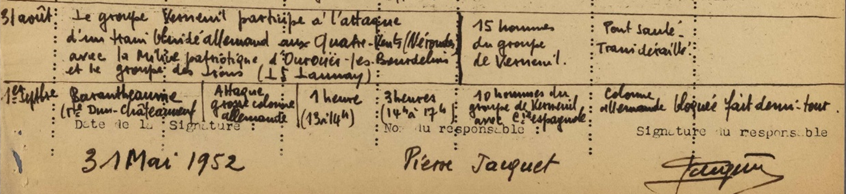 31 août Le groupe Verneuil participe à l'attaque
d'un train blindé allemand aux Quatre-Vents (Nérondes)
avec la Milice patriotique d'Ourouër-les-Bourdelins
et le groupe des Lions (Lt Launay)
15 hommes
du groupe
de Verneuil.
Pont sauté-
Train déraillé
1er Septbre
Barantheaume
(Rte Dun-Châteauneuf
Attaque
grosse colonne
allemande
1 heure
(13 à 14h)
3 heures
(14h à 17h)
10 hommes du
groupe de Verneuil
avec Cie espagnole
Colonne
allemande bloquée fait demi-tour.
Date de la Signature :
Nom du responsable
Signature du responsable
31 Mai 1952
Pierre Jacquet